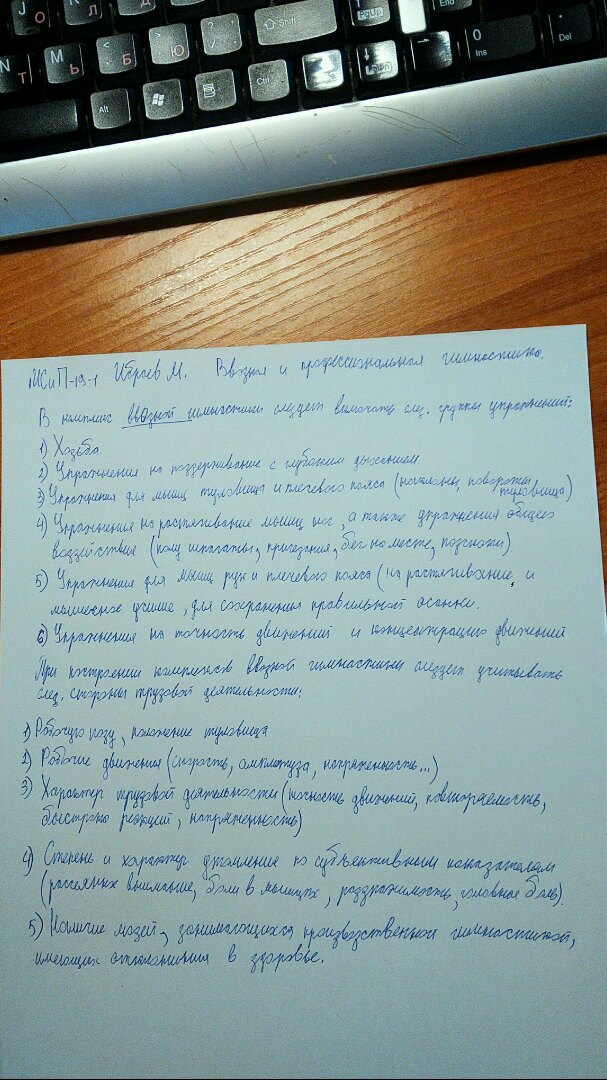 J О
K Л
L Д
End
N Т
M Ь
< , Б
> . Ю
? /
Shift
PgUp
0 Ins
. Del
Alt
Ctrl
PgDn
МСиП-19-1 Ибраев М. Вводная и профессиональная гимнастика.
В комплекс вводной гимнастики следует включать след. группы упражнений:
1) Ходьба
2) Упражнения на поддерживание с глубоким дыханием.
3) Упражнения для мышц туловища и плечевого пояса (наклоны, повороты туловища)
4) Упражнения на растягивание мышц ног, а также упражнения общего
воздействия (полу шпагаты, приседания, бег на месте, подскоки).
5) Упражнения для мышц рук и плечевого пояса (на растягивание, и
мышечное усилие, для сохранения правильной осанки.
6) Упражнения на точность движений и концентрацию движений
При построении комплексов вводной гимнастики следует учитывать
след. стороны трудовой деятельности:
1) Рабочую позу, положение туловища
2) Рабочие движения (скорость, амплитуда, напряженность...)
3) Характер трудовой деятельности (точность движений, повторяемость,
быстрота реакций, напряженность)
4) Степень и характер утомления по субъективным показателям
(рассеянное внимание, боли в мышцах, раздражимость, головная боль).
5) Наличие людей, занимающихся производственной гимнастикой,
имеющих отклонения в здоровье.